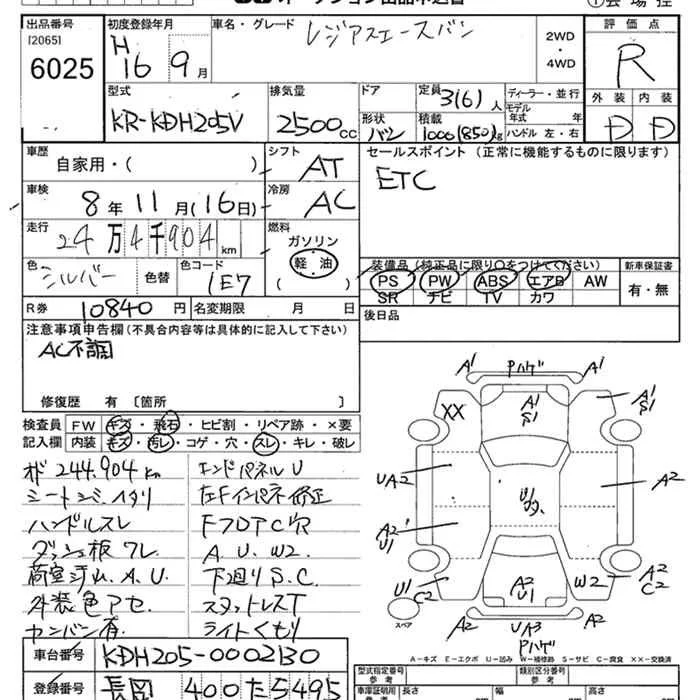 オークション出品申込書
①会場控
出品番号 初度登録年月 車名・グレード 評価点
[2065] H レジアスエースバン 2WD・4WD R
6025 16 9月
型式 排気量 ドア 定員 ディーラー・並行 外装 内装
3(6)人 モデル年式 年
KR-KDH205V 2500cc 形状 積載 ハンドル 左・右 D D
バン 1000(850)kg
車歴 シフト セールスポイント(正常に機能するものに限ります)
自家用・( ) AT ETC
車検 冷房
8年11月(16日) AC
走行 燃料
24万4千904km ガソリン
色 色コード 軽油 装備品(純正品に限り○をつけてください) 新車保証書
シルバー 色替 1E7 ( ) PS PW ABS エアB AW 有・無
SR ナビ TV カワ
R券 10840円 名変期限 月 日 後日品
注意事項申告欄(不具合内容等は具体的に記入して下さい)
AC不調
修復歴 有〔箇所 〕
検査員 FW キズ・飛石・ヒビ割・リペア跡・×要
記入欄 内装 キズ・汚レ・コゲ・穴・スレ・キレ・破レ
メーター 244,904km エンドパネルU
シートシミ、ヘタリ 左Fインパネ修正
ハンドルスレ FフロアC穴
ダッシュ板ワレ A.U.W2.
荷室汚レ.A.U. 下廻りS.C.
外装色アセ. スタットレスT
カンバン有. ライトくもり
A1 Pハゲ A1
XX A1 S1 A1 S1
UA2 A2
A2 U1
U1 C2 A2 U1 W2 A2 C2
スペア A2 UA3 A2
Pハゲ
A−キズ E−エクボ U−凹み W−補修跡 S−サビ C−腐食 XX−交換済
車台番号 KDH205-0002130
登録番号 長岡 400 た 5495
型式指定番号 参考 類別区分番号 参考
車庫証明用 長さ 幅 高さ